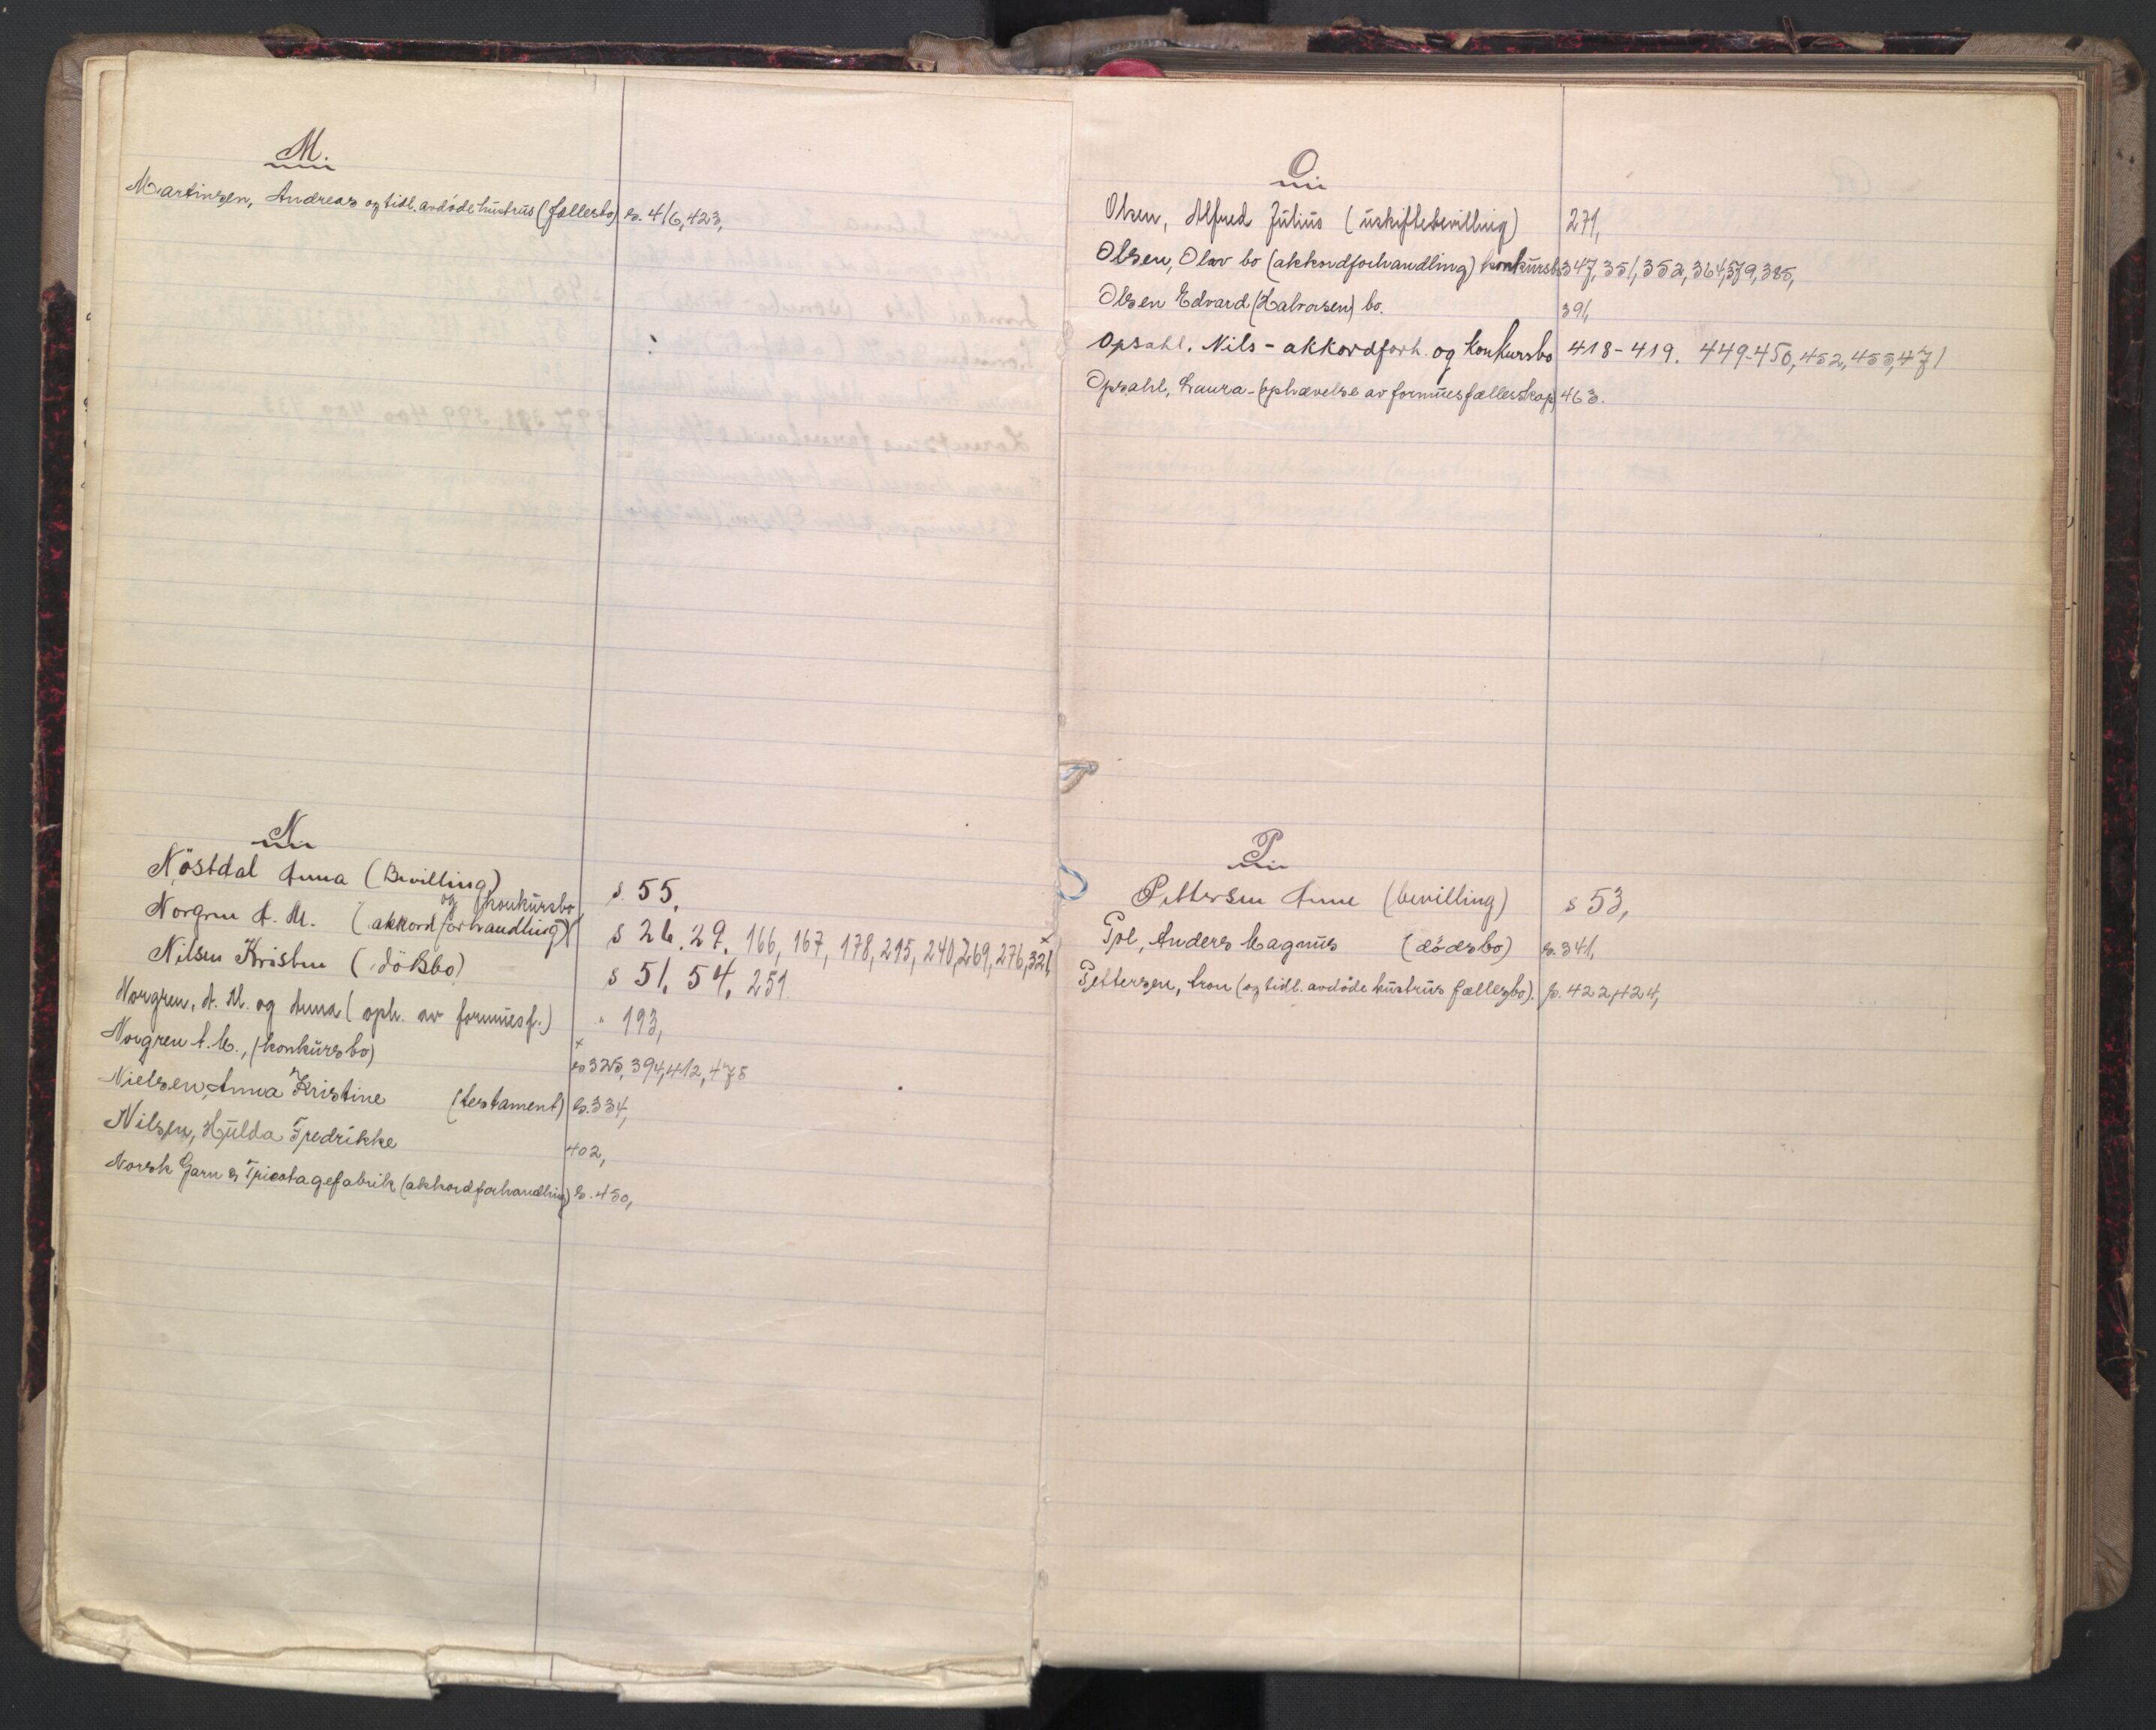 M.
Martinsen, Andreas og tidl. avdöde hustrus (fællesbo) s. 416, 423,
N
Nöstdal Anna (Bevilling) s. 55,
og konkursbo
Norgren A. M. (akkordforhandling) s 26. 29. 166, 167, 178, 215, 240, 269, 276, 321,
Nilsen Kristen (dödsbo) s 51, 54, 251.
Norgren, A. M. og Anna (oph. av formuesf.) " 193,
Norgren A. M., (konkursbo) s 325, 394, 412, 475
Nielsen, Anna Kristine (testament) s. 334,
Nilsen, Hulda Fredrikke 402,
Norsk Garn & Tricotagefabrik (akkordforhandling) s. 450,
O
Olsen, Alfred Julius (uskiftebevilling) 271,
Olsen, Olav bo (akkordforhandling) konkursb. 347, 351, 352, 364, 379, 385,
Olsen Edvard (Halvorsen) bo. 391,
Opsahl. Nils - akkordforh. og Konkursbo 418-419. 449-450, 452, 455, 471
Opsahl, Laura - (ophævelse av formuesfællesskap) 463.
P
Pettersen Anne (bevilling) s 53,
Anders Magnus (dödsbo) s. 341,
Pettersen, (og tidl. avdöde hustrus fællesbo). s. 422, 424,